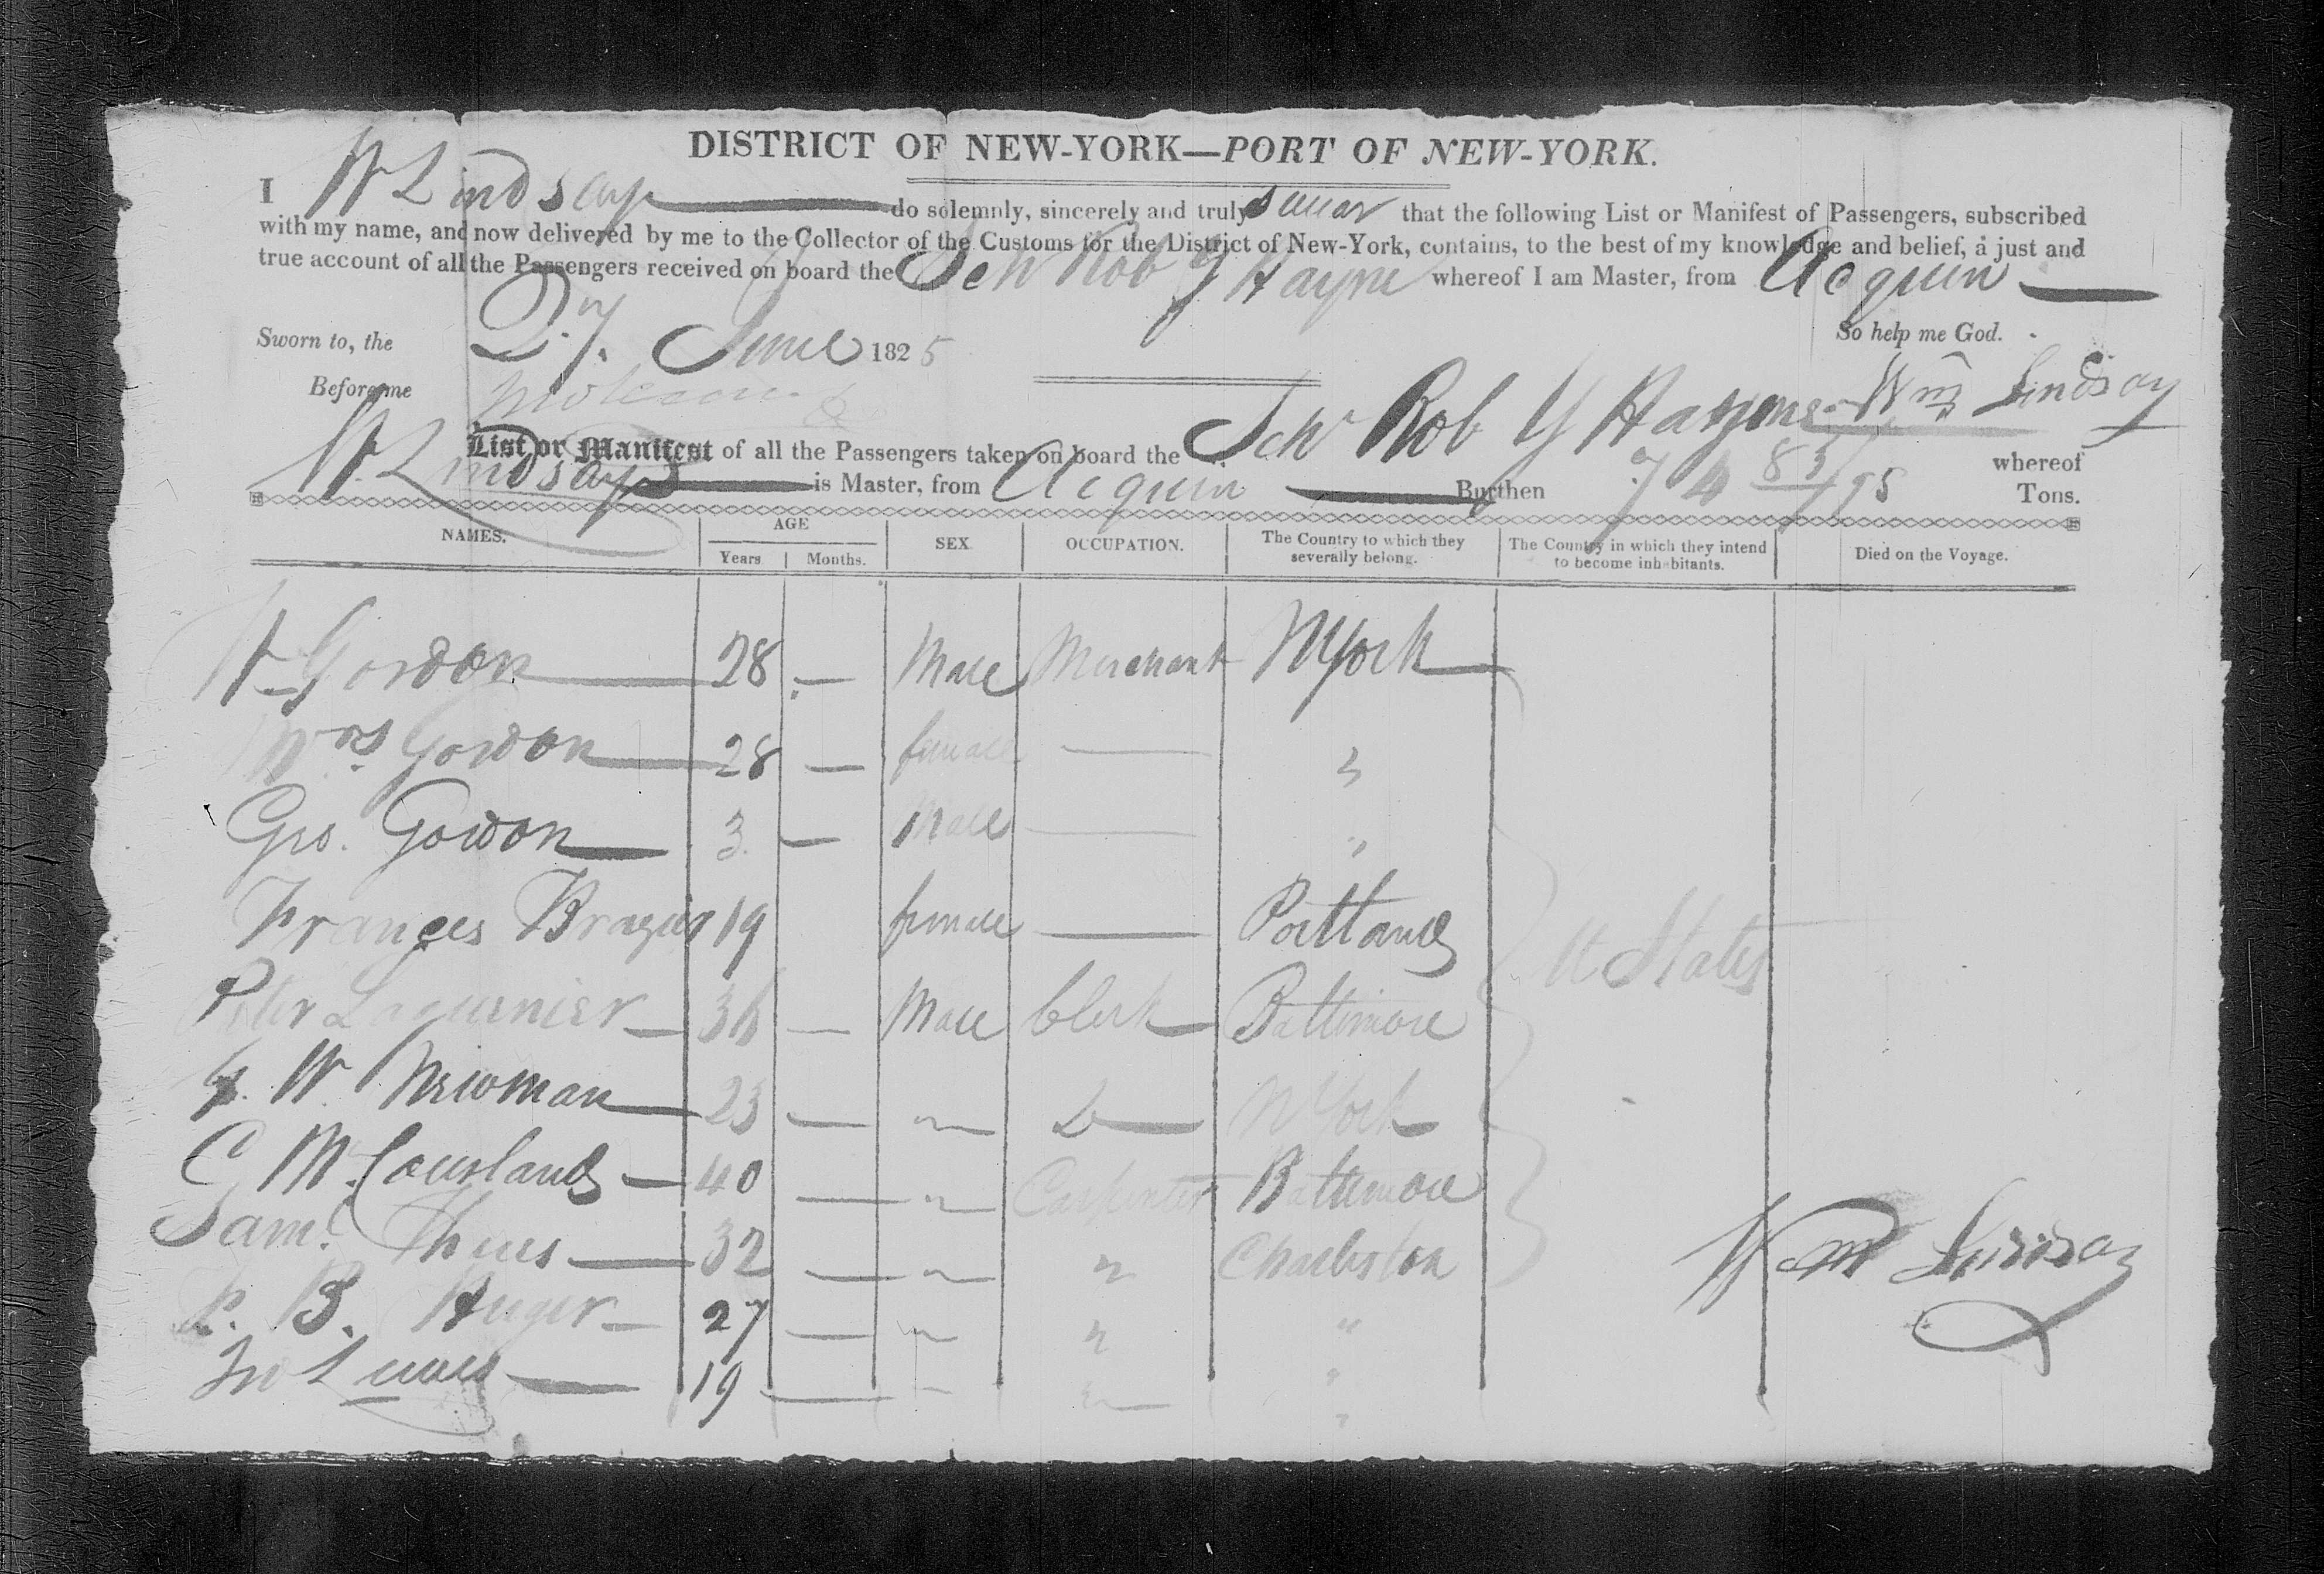 DISTRICT OF NEW-YORK—PORT OF NEW-YORK.
I W Lindsay do solemnly, sincerely and truly swear that the following List or Manifest of Passengers, subscribed
with my name, and now delivered by me to the Collector of the Customs for the District of New-York, contains, to the best of my knowledge and belief, a just and
true account of all the Passengers received on board the Schr Rob Y Hayne whereof I am Master, from Acquin
So help me God.
Sworn to, the 27. June 1825
Before me
Wm Lindsay
List or Manifest of all the Passengers taken on board the Schr Rob Y Hayne whereof
W. Lindsay is Master, from Acquin Burthen 74 83/95 Tons.
NAMES. AGE Years Months. SEX OCCUPATION. The Country to which they severally belong. The Country in which they intend to become inhabitants. Died on the Voyage.
W Gordon 28 — Male Merchant NYork
Mrs Gordon 28 — female — "
Geo. Gordon 3 — Male — "
Frances 19 female — Portland
U States
Peter 36 — Male Clerk Baltimore
W. Newman 23 — " Do NYork
C McCausland 40 — " Carpenter Baltimore
Saml. 32 — " " Charleston
B. Huger 27 — " " "
Jno 19 — " " "
Wm Lindsay